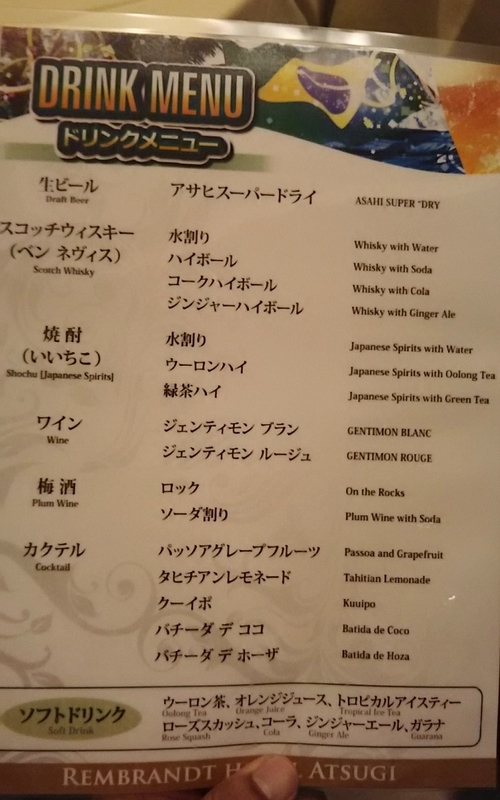 DRINK MENU
ドリンクメニュー
生ビール アサヒスーパードライ ASAHI SUPER "DRY
Draft Beer
スコッチウィスキー 水割り Whisky with Water
（ベン ネヴィス） ハイボール Whisky with Soda
Scotch Whisky コークハイボール Whisky with Cola
ジンジャーハイボール Whisky with Ginger Ale
焼酎 水割り Japanese Spirits with Water
（いいちこ） ウーロンハイ Japanese Spirits with Oolong Tea
Shochu [Japanese Spirits] 緑茶ハイ Japanese Spirits with Green Tea
ワイン ジェンティモン ブラン GENTIMON BLANC
Wine ジェンティモン ルージュ GENTIMON ROUGE
梅酒 ロック On the Rocks
Plum Wine ソーダ割り Plum Wine with Soda
カクテル パッソアグレープフルーツ Passoa and Grapefruit
Cocktail タヒチアンレモネード Tahitian Lemonade
クーイポ Kuuipo
バチーダ デ ココ Batida de Coco
バチーダ デ ホーザ Batida de Hoza
ソフトドリンク ウーロン茶、オレンジジュース、トロピカルアイスティー
Soft Drink Oolong Tea Orange Juice Tropical Ice Tea
ローズスカッシュ、コーラ、ジンジャーエール、ガラナ
Rose Squash Cola Ginger Ale Guarana
REMBRANDT ATSUGI